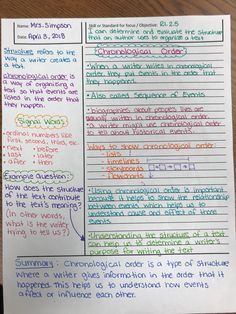 Name: Mrs. Simpson
Date: April 3, 2018
Skill or Standard for focus / Objective: RI.2.5
I can determine and evaluate the structure
that an author uses to organize a text.
Structure refers to the
way a writer creates
a text.
Chronological order is
a way of organizing
a text so that events are
listed in the order that
they happen.
Signal Words
ordinal numbers like
first, second, third, etc.
next • before
last • later
after • then
Example Question:
How does the structure
of the text contribute
to the text's meaning?
(In other words,
what is the writer
trying to tell us?)
Chronological Order
• When a writer writes in chronological
order, they put events in the order that
they happened.
• Also called Sequence of Events
• biographies about people's lives are
usually written in chronological order.
• a writer might use chronological order
to tell about historical events.
Ways to show chronological order
- lists
- timelines
- storyboards
- flowcharts
• Using chronological order is important
because it helps to show the relationship
between events which helps us to
understand cause and effect of those
events.
• Understanding the structure of a text
can help us to determine a writer's
purpose for writing the text
Summary: Chronological order is a type of structure
where a writer gives information in the order that it
happened. This helps us to understand how events
affect or influence each other.